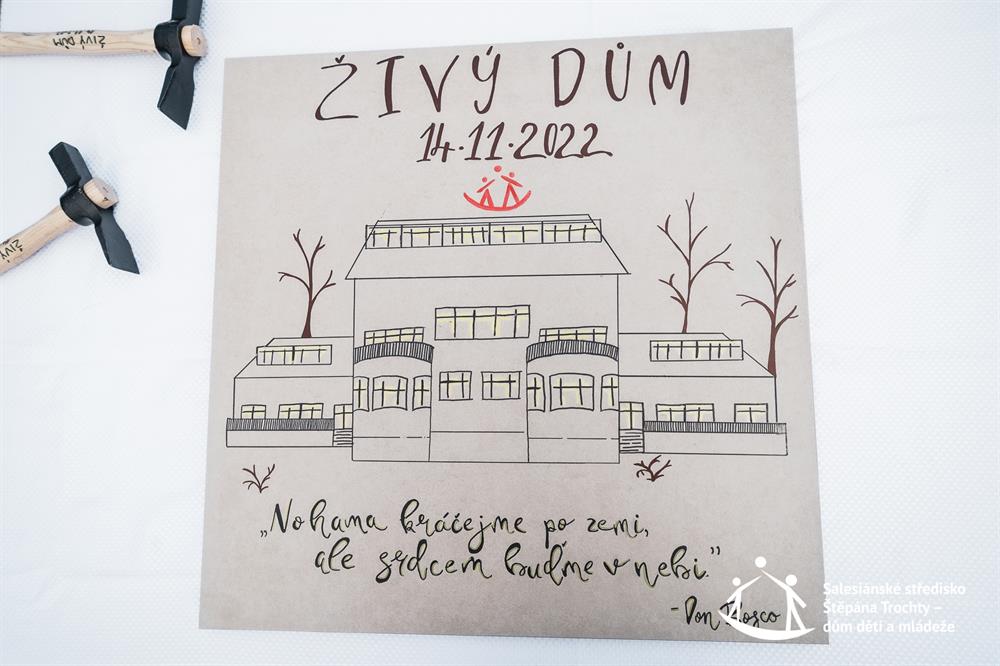 ŽIVÝ DŮM
14.11.2022
„Nohama kráčejme po zemi,
ale srdcem buďme v nebi."
- Don Bosco
ŽIVÝ DŮM
ŽIVÝ
Salesiánské středisko
Štěpána Trochty –
dům dětí a mládeže